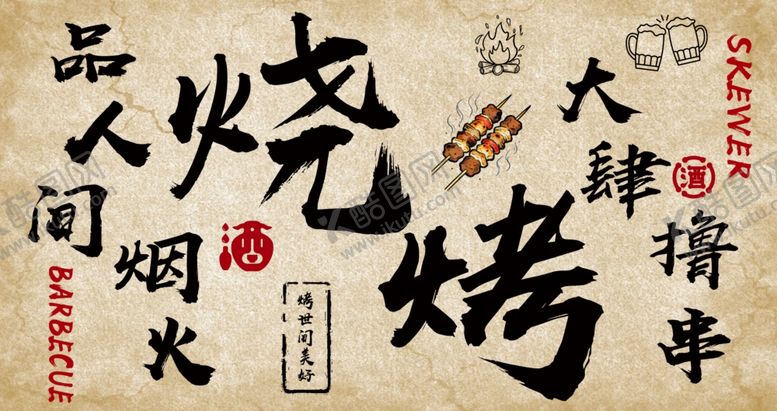 品人间
烟火
烧烤
大肆
撸串
SKEWER
BARBECUE
酒
酒
烤世间美好
酷图网
www.ikutu.com